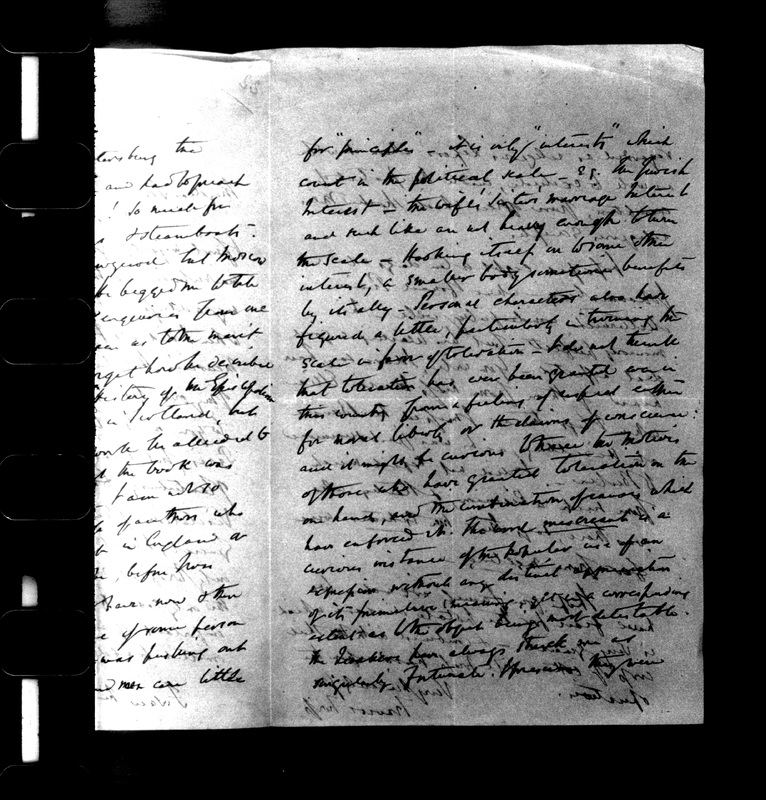 tersburg the
and had to preach
! So much for
& steamboats.
but Moscow
he begged me to tell
enquiries from me
as to the merit
forget how he describes
history of the Episcopalian
in Scotland, but
wrote he alluded to
the book was
I am not so
of authors who
in England or
before from
have now other
of some person
was pushing out
men care little
for "principles" - it is only "interests" which
count in the political scale - E.g. the Jewish
Interest - the wife's Sisters marriage Interest
and such like are not heavy enough to turn
the scale - Hooking itself on to some other
interest, a smaller body sometimes benefits
by its ally - Personal characters also have
figured as better, particularly in turning the
scale in favor of toleration - I do not think
that toleration has ever been granted even in
this country from a feeling of respect either
for moral liberty or the claims of conscience:
and it might be curious to trace the motives
of those who have granted toleration on the
one hand, and the combination of causes which
have enforced it. The word miscreant is a
curious instance of the popular use of an
without any distinct appreciation
of its primitive meaning, yet in a corresponding
extent as to the object being most detestable.
the have always struck me as
singularly fortunate.